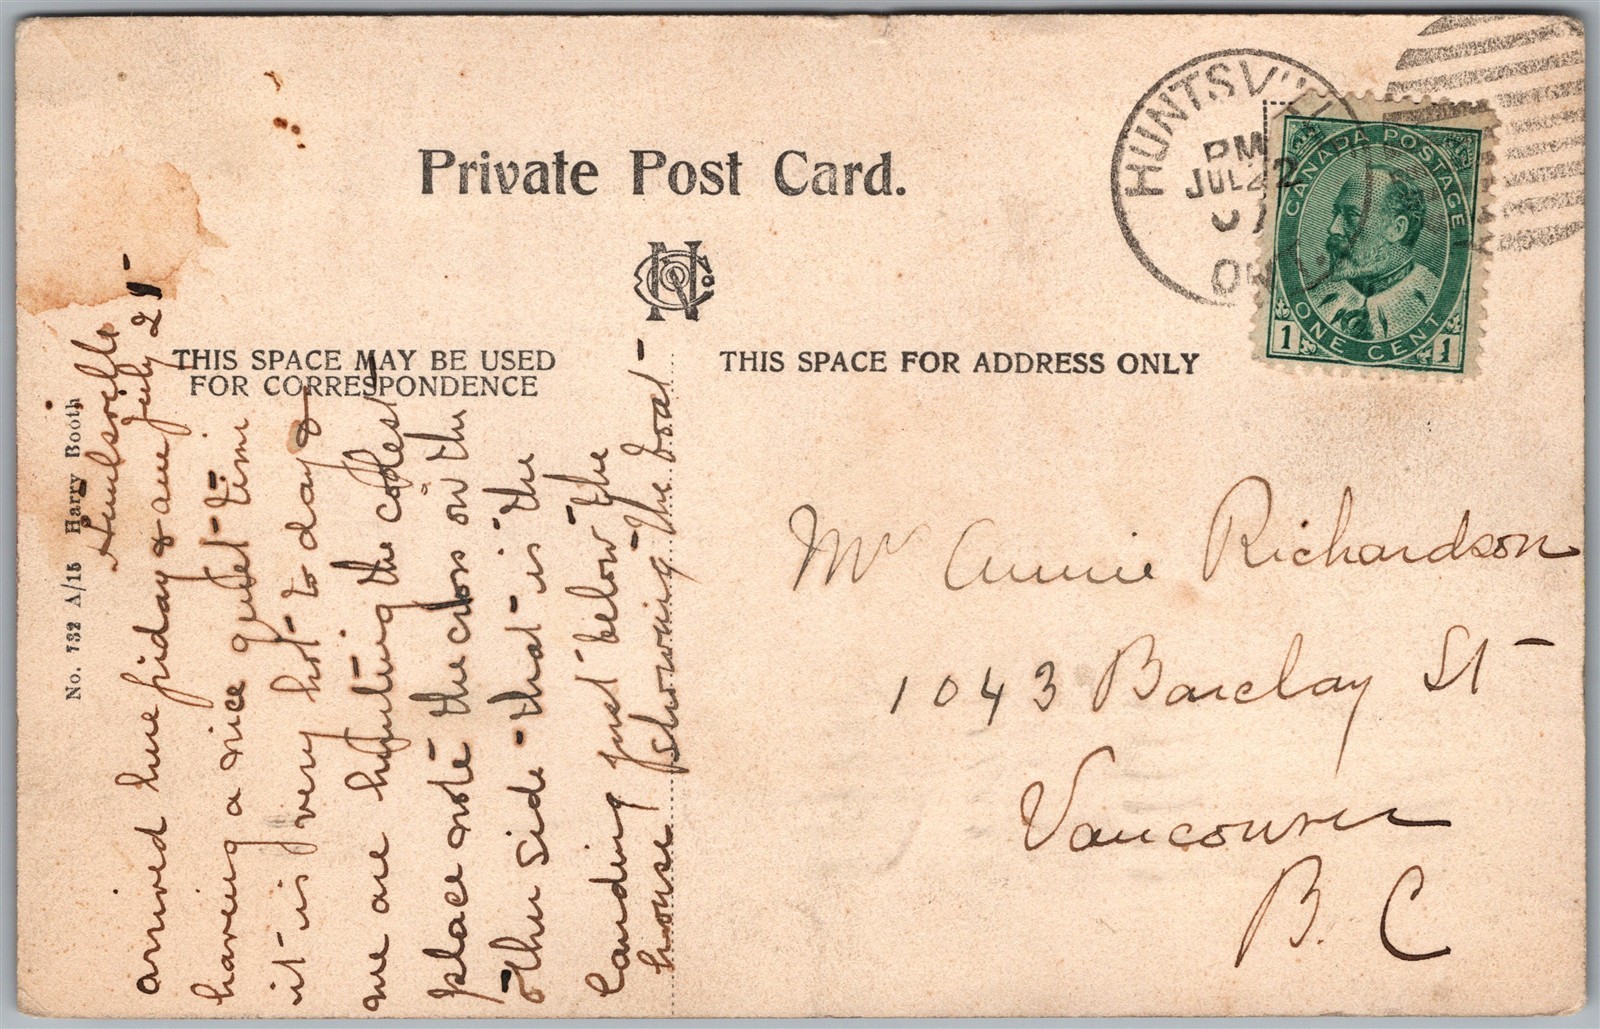 Private Post Card.
THIS SPACE MAY BE USED
FOR CORRESPONDENCE
THIS SPACE FOR ADDRESS ONLY
HUNTSVILL
PM
JUL 22
07
ONT.
CANADA POSTAGE
ONE CENT
1 1
No. 732 A/15 Harry Booth
Huntsville
July 21-
arrived here friday & are
having a nice quiet time
it is very hot to day &
we are hunting the coolest
place note the cross on the
other side - that is the
landing just below the
house showing the boat -
Mrs Annie Richardson
1043 Barclay St
Vancouver
B. C